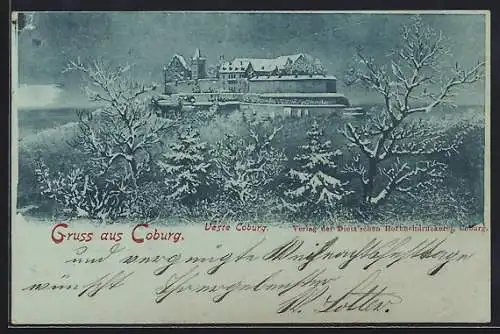 Veste Coburg.
Verlag der Dietz'schen Hofbuchdruckerei, Coburg.
Gruss aus Coburg.
und vergnügte Weihnachtsfeiertage
wünscht Ihr ergebenster